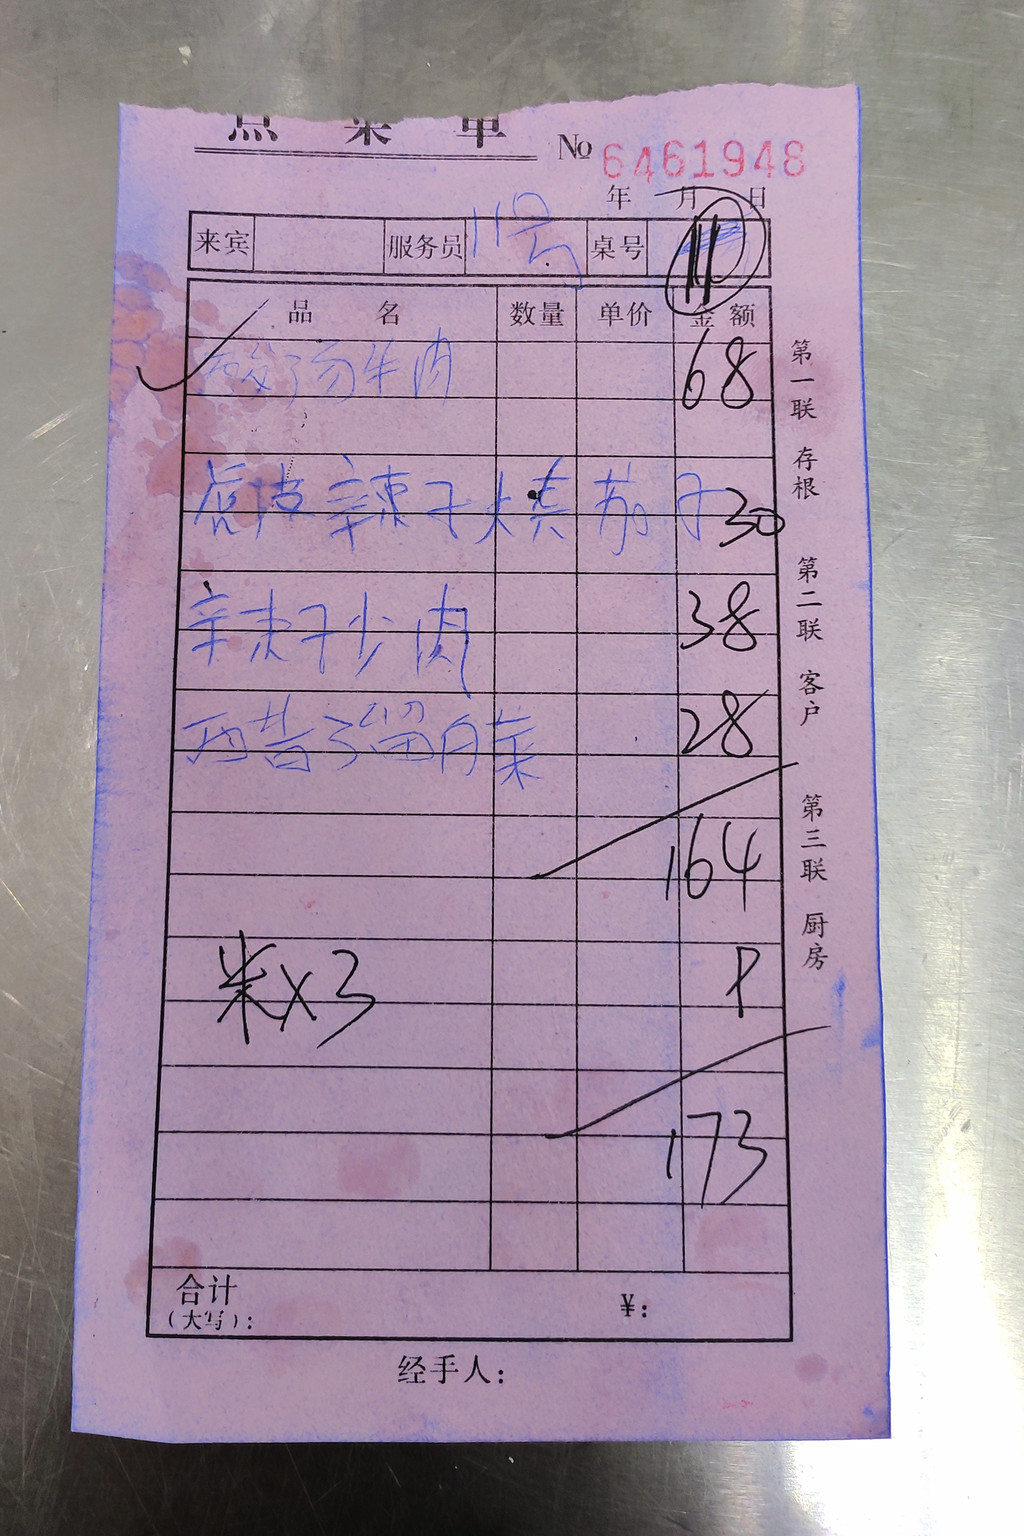 点菜单
No 6461948
年 月 日
来宾 服务员 11号 桌号 11
品名 数量 单价 金额
酸汤牛肉 68
虎皮辣子烧茄子 30
辣子炒肉 38
28
164
米X3 9
173
合计
(大写): ¥:
经手人:
第一联 存根 第二联 客户 第三联 厨房